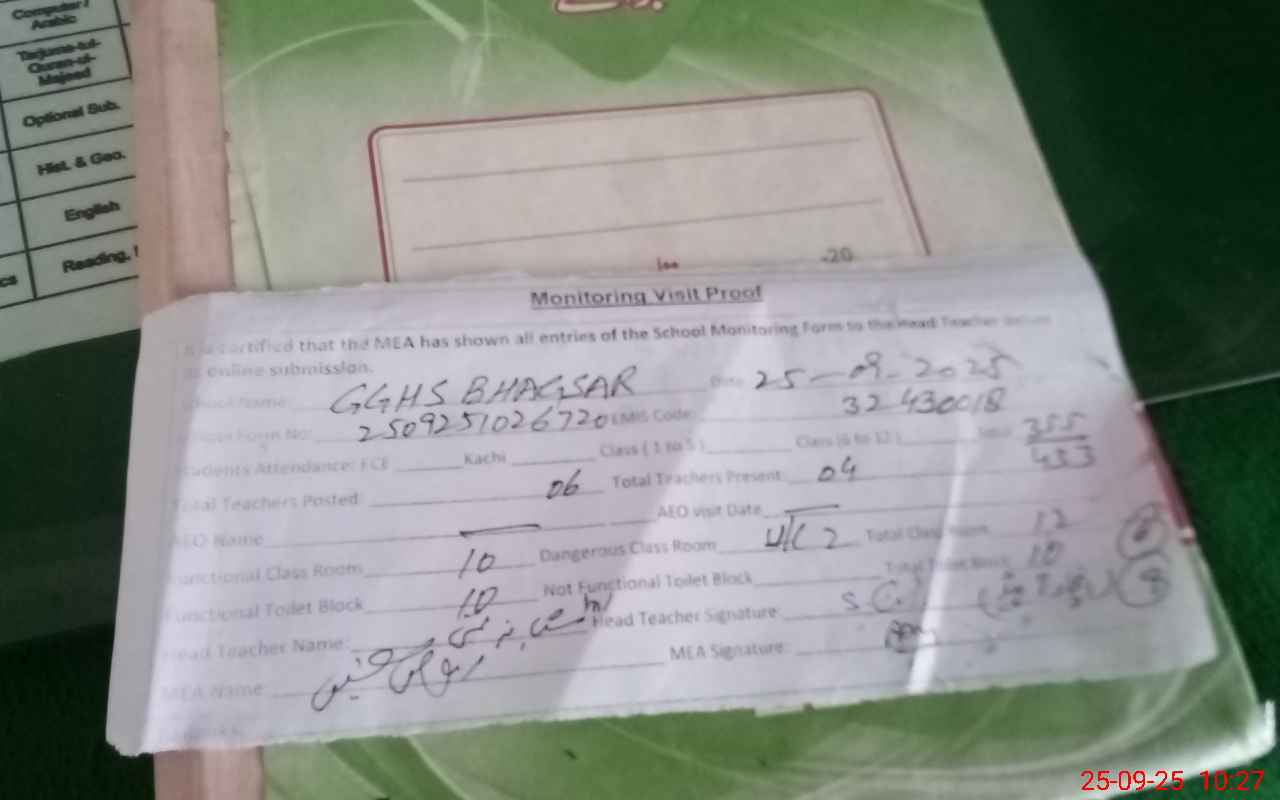 Computer / Arabic
Tarjuma-tul-Quran-ul-Majeed
Optional Sub.
Hist. & Geo.
English
Reading,
cs
-20
Monitoring Visit Proof
certified that the MEA has shown all entries of the School Monitoring Form to the Head Teacher
online submission.
School Name: GGHS BHAGSAR Date 25-09-2025
Form No: 2509251026720 EMIS Code: 32430018
Students Attendance: ECE Kachi Class ( 1 to 5 ) Class (6 to 12 ) Total 355/433
Total Teachers Posted: 06 Total Teachers Present: 04
AEO Name AEO visit Date
Functional Class Room 10 Dangerous Class Room U/C 2 Total Class Room 12
Functional Toilet Block 10 Not Functional Toilet Block Total Toilet Block 10
Head Teacher Name: Head Teacher Signature:
MEA Name: MEA Signature:
25-09-25 10:27